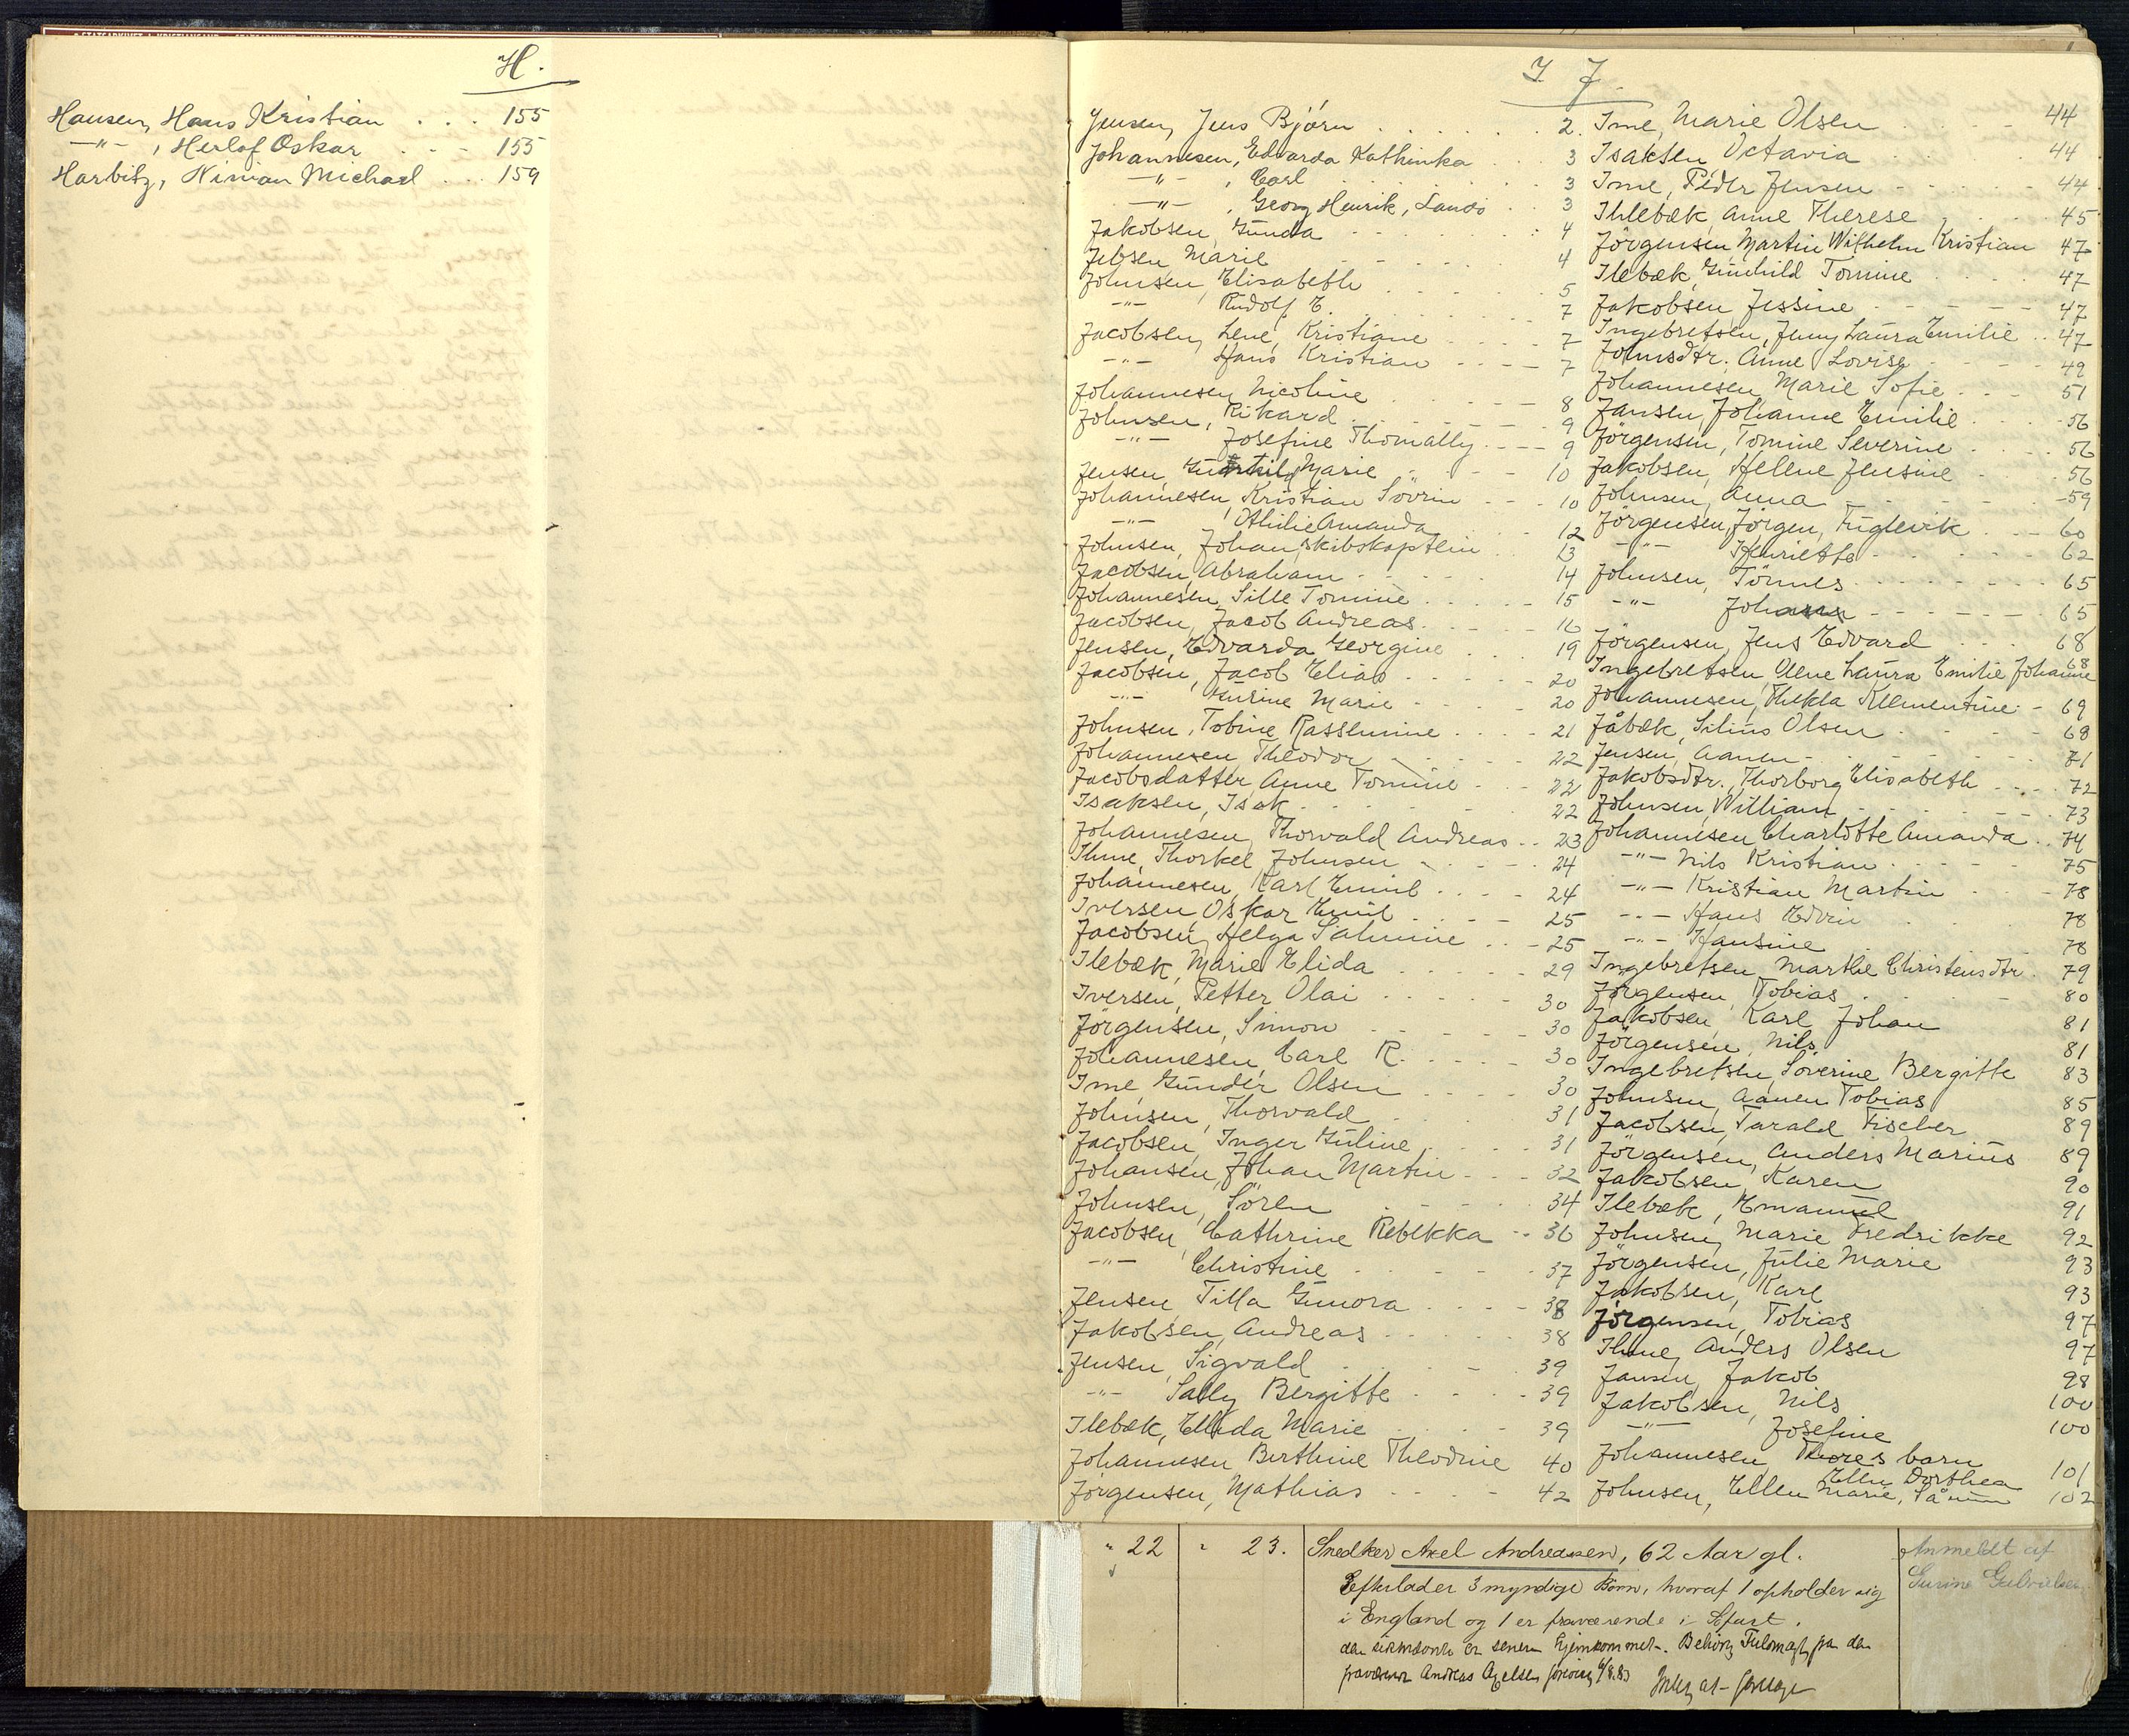 H.
Hansen, Hans Kristian . . . 155
-"- , Herlof Oskar . . . 155
Harbitz, Ninian Michael . . . 159
I J.
Jensen, Jens Bjórn . . . 2.
Johannesen, Edvarda Kathinka . . 3
-"- , Carl . . . 3
-"- , Georg Henrik, Landö . . 3
Jakobsen, Gunda . . . 4
Jebsen, Marie . . . 4
Johnsen, Elisabeth . . . 5
-"- Rudolf E. . . . 7
Jacobsen, Lene, Kristiane . . . 7
-"- Hans Kristian . . . 7
Johannesen, Nicoline . . . 8
Johnsen, Rikard . . . 9
-"- Josefine Thomally . . . 9
Jensen, Marie . . . 10
Johannesen, Kristian Sövrin . . 10
-"- Othilie Amanda . . 12
Johnsen, Johan, skibskaptein . . 13
Jacobsen, Abraham . . . 14
Johannesen, Sille Tomine . . . 15
Jacobsen, Jacob Andreas . . . 16
Jensen, Edvarda Georgine . . . 19
Jacobsen, Jacob Elias . . . 20
-"- Gurine Marie . . . 20
Johnsen, Tobine Rassemine . . . 21
Johannesen, Theodor . . . 22
Jacobsdatter, Anne Tomine . . . 22
Isaksen, Isak . . . 22
Johannesen, Thorvald Andreas . . 23
Ihme, Thorkel Johnsen . . . 24
Johannesen, Karl Emil . . . 24
Iversen, Oskar Emil . . . 25
Jacobsen, Helga Salmine . . . 25
Ilebæk, Marie Elida . . . 29
Iversen, Petter Olai . . . 30
Jörgensen, Simon . . . 30
Johannesen, Carl R. . . . 30
Ime, Gunder Olsen . . . 30
Johnsen, Thorvald . . . 31
Jacobsen, Inger Guline . . . 31
Johansen, Johan Martin . . . 32
Johnsen, Sören . . . 34
Jacobsen, Cathrine Rebekka . . 36
-"- Christine . . . 37
Jensen, Tilla Gunora . . . 38
Jakobsen, Andreas . . . 38
Jensen, Sigvald . . . 39
-"- Sally Bergitte . . . 39
Ilebæk, Ellida Marie . . . 39
Johannesen Berthine Theodine 40
Jörgensen, Mathias . . . 42
Ime, Marie Olsen . . . 44
Isaksen, Octavia . . . 44
Ime, Peder Jensen . . . 44
Ihlebæk, Anne Therese . . . 45
Jörgensen, Martin Wilhelm Kristian 47
Ilebæk, Gunhild Tomine . . . 47
Jakobsen Jessine . . . 47
Ingebretsen, Jenny Laura Emilie . . 47
Johnsdtr. Anne Lovise . . . 49
Johannesen, Marie Sofie . . . 51
Jansen, Johanne Emilie . . . 56
Jörgensen, Tomine Severine . . . 56
Jakobsen, Helene Jensine . . . 56
Johnsen, Anna . . . 59
Jörgensen, Jörgen, Fuglevik . . . 60
-"- Henriette . . . 62
Johnsen, Tönnes . . . 65
-"- Johanne . . . 65
Jörgensen, Jens Edvard . . . 68
Ingebretsen, Olene Laura Emilie Johanne 68
Johannesen, Thekla Klementine . . 69
Jåbæk, Silius Olsen . . . 69
Jensen, Aanen . . . 71
Jakobsdtr., Thorborg Elisabeth . . . 72
Johnsen, William . . . 73
Johannesen Charlotte Amanda . . 74
-"- Nils Kristian . . . 75
-"- Kristian Martin . . . 78
-"- Hans Edvin 78
-"- Hansine . . . 78
Ingebretsen, Marthe Christensdtr. 79
Jörgensen, Tobias . . . 80
Jakobsen, Karl Johan 81
Jörgensen, Nils 81
Ingebretsen, Soverine Bergitte 83
Johnsen, Aanen Tobias 85
Jacobsen, Tarald Fischer 89
Jörgensen, Anders Marius 89
Jakobsen, Karen 90
Ilebæk, Emanuel 91
Johnsen, Marie Fredrikke 92
Jörgensen, Julie Marie 93
Jakobsen, Karl 93
Jörgensen, Tobias 97
Ihme, Anders Olsen 97
Jansen, Jakob 98
Jakobsen, Nils 100
-"- Josefine 100
Johannesen, Thores barn 101
Ellen Dorthea
Johnsen, Ellen Marie, 102
" 22 " 23. Snedker Axel Andreasen, 62 Aar gl.
Efterlader 3 myndige Börn, hvoraf 1 opholder sig
i England og 1 er fraværende i Sjöfart.
den sidstnævnte er senere hjemkommet. Behörig Fuldmagt fra den
fraværende Andreas Axelsen 6/8.83
Anmeldt af
Surine Gabrielsen